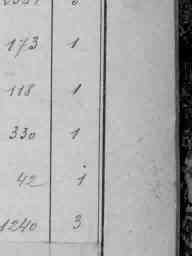 173 1
118 1
330 1
42 1
1240 3